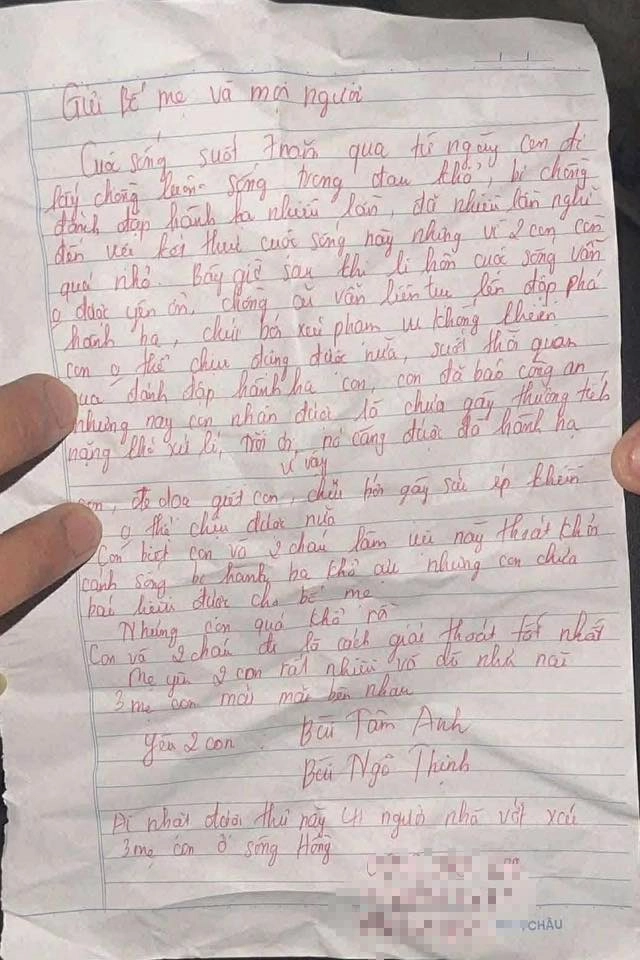 Gửi Bố mẹ và mọi người
Cuộc sống suốt 7 năm qua từ ngày con đi
lấy chồng luôn sống trong đau khổ, bị chồng
đánh đập hành hạ nhiều lần, đã nhiều lần nghĩ
đến việc kết thúc cuộc sống này nhưng vì 2 con còn
quá nhỏ. Bây giờ sau khi li hôn cuộc sống vẫn
o được yên ổn, chồng cũ vẫn liên tục lên đập phá
hành hạ, chửi bới xúc phạm vu khống khiến
con o thể chịu đựng được nữa, suốt thời quan
qua đánh đập hành hạ con, con đã báo công an
nhưng nay con nhận được là chưa gây thương tích
nặng khó xử lí, trời ơi, nó càng được đó hành hạ
vì vậy
con, đe doạ giết con, chửi bới gây sức ép khiến
o thể chịu được nữa
Con biết con và 2 cháu làm việc này thoát khỏi
cảnh sống bị hành hạ khổ ải nhưng con chưa
báo hiếu được cho bố mẹ
Nhưng con quá khổ rồi
Con và 2 cháu đi là cách giải thoát tốt nhất
Mẹ yêu 2 con rất nhiều và dù như nào
3 mẹ con mãi mãi bên nhau
Yêu 2 con : Bùi Tâm Anh
Bùi Ngô Thịnh
Ai nhặt được thư này người nhà vớt xác
3 mẹ con ở sông Hồng
CHÂU